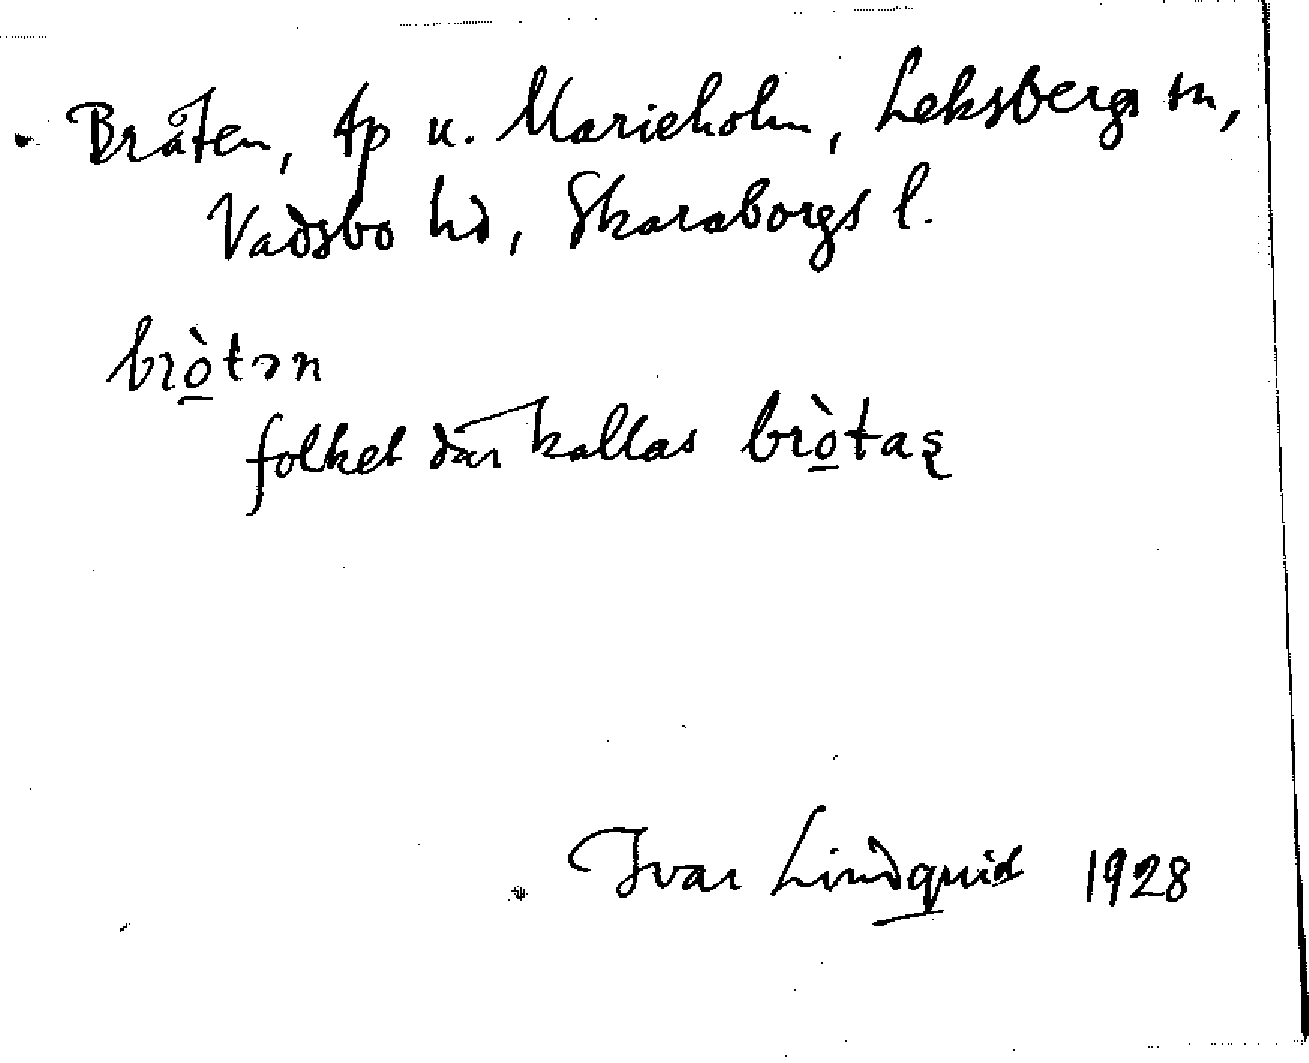 Bråten, tp u. Marieholm, Leksbergs sn,
Vadsbo hd, Skaraborgs l.
brò̲tən
folket där kallas brò̲taʂ
Ivar Lindquist 1928